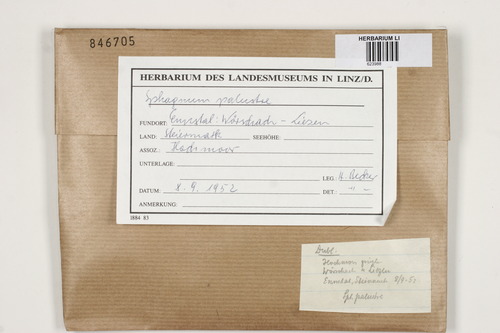 846705
HERBARIUM LI
HERBARIUM DES LANDESMUSEUMS IN LINZ/D.
Sphagnum palustre
FUNDORT: Ennstal: Wörschach - Liezen
LAND: Steiermark SEEHÖHE:
ASSOZ.: Hochmoor
UNTERLAGE:
LEG.: H. Becker
DATUM: 8. 9. 1952 DET.: " -
ANMERKUNG:
1884 83
Hochmoor
Wörschach Liezen
Ennstal, Steiermark
Sph. palustre